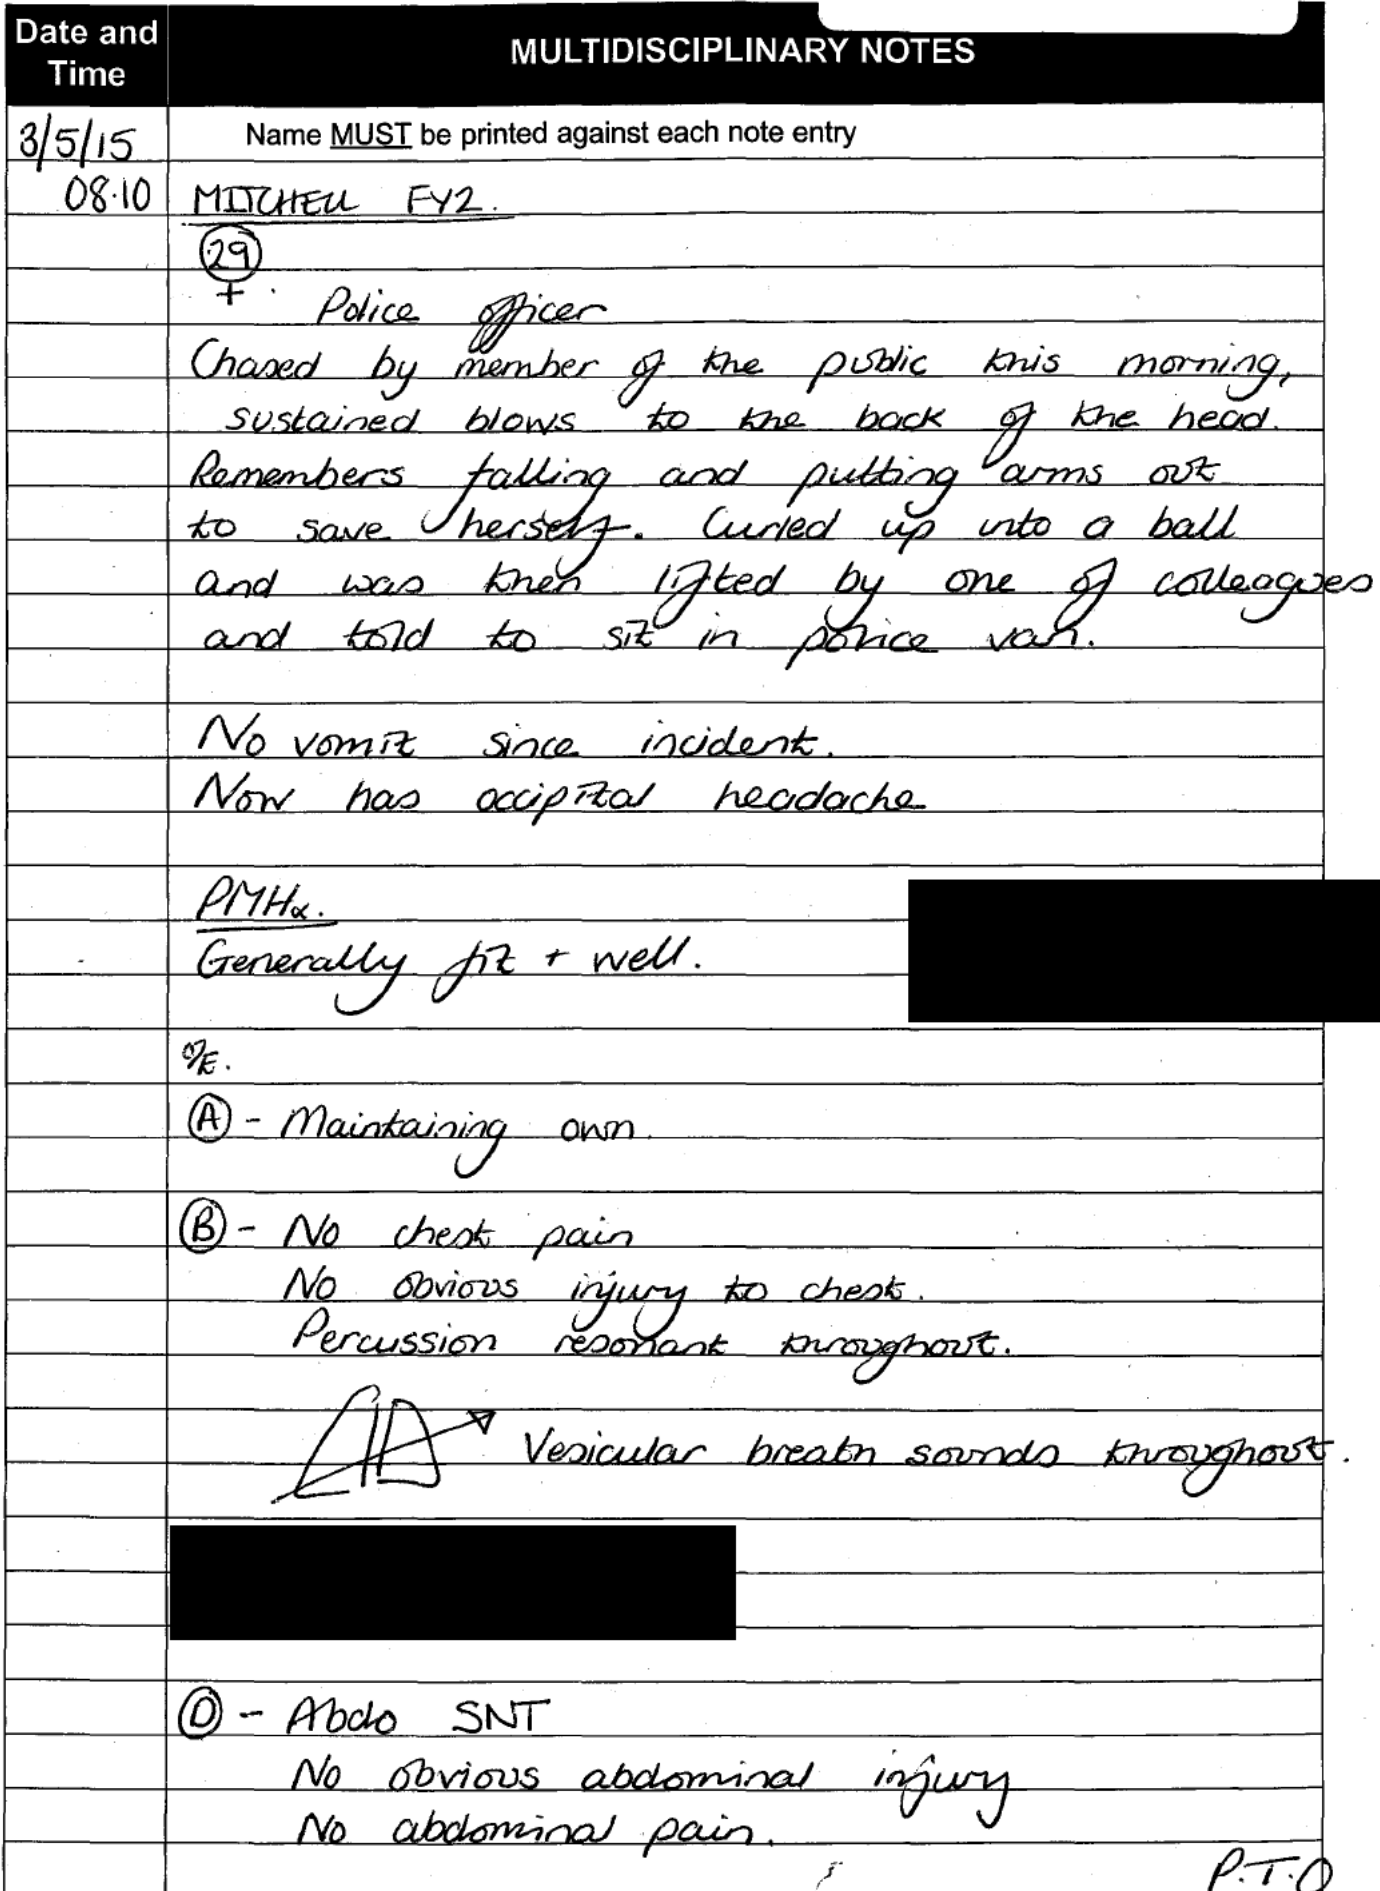 Date and Time
MULTIDISCIPLINARY NOTES
3/5/15
Name MUST be printed against each note entry
08.10
MITCHELL FY2.
29
Police officer
Chased by member of the public this morning,
sustained blows to the back of the head.
Remembers falling and putting arms out
to save herself. Curled up into a ball
and was then lifted by one of colleagues
and told to sit in police van.
No vomit since incident.
Now has occipital headache
PMHx.
Generally fit + well.
O/E.
A - Maintaining own.
B - No chest pain
No obvious injury to chest.
Percussion resonant throughout.
Vesicular breath sounds throughout.
D - Abdo SNT
No obvious abdominal injury
No abdominal pain.
P.T.O